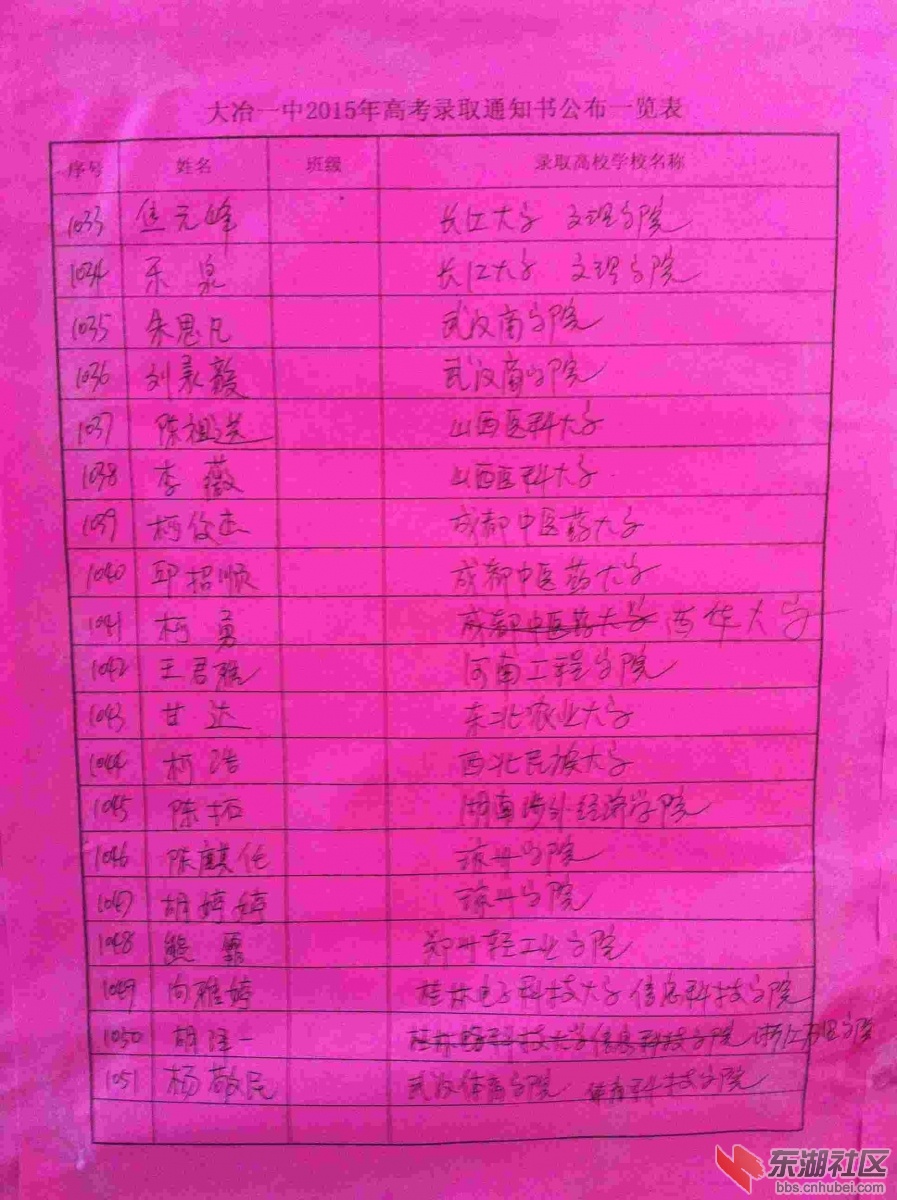 大冶一中2015年高考录取通知书公布一览表
序号 姓名 班级 录取高校学校名称
1033 焦元峰 长江大学 文理学院
1034 乐泉 长江大学 文理学院
1035 朱思凡 武汉商学院
1036 刘录毅 武汉商学院
1037 陈祖送 山西医科大学
1038 李薇 山西医科大学
1039 柯俊杰 成都中医药大学
1040 邱招顺 成都中医药大学
1041 柯勇 成都中医药大学 西华大学
1042 王君雅 河南工程学院
1043 甘达 东北农业大学
1044 柯浩 西北民族大学
1045 陈拓 湖南涉外经济学院
1046 陈麒伦 琼州学院
1047 胡婷婷 琼州学院
1048 熊 郑州轻工业学院
1049 向雅婷 桂林电子科技大学信息科技学院
1050 胡隆一 桂林电子科技大学信息科技学院 浙江万里学院
1051 杨敬民 武汉体育学院 体育科技学院
东湖社区
bbs.cnhubei.com